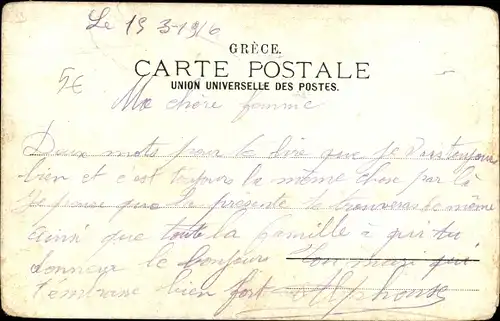 Le 19 3-1916
GRÈCE.
CARTE POSTALE
UNION UNIVERSELLE DES POSTES.
5€
Ma chère femme
Deux mots pour te dire que je suis toujours
bien et c'est toujours la même chose par là
Je pense que la présente te trouveras le même
ainsi que toute la famille a qui tu
donneras le bonjours Ton mari qui
t'embrasse bien fort Alphonse